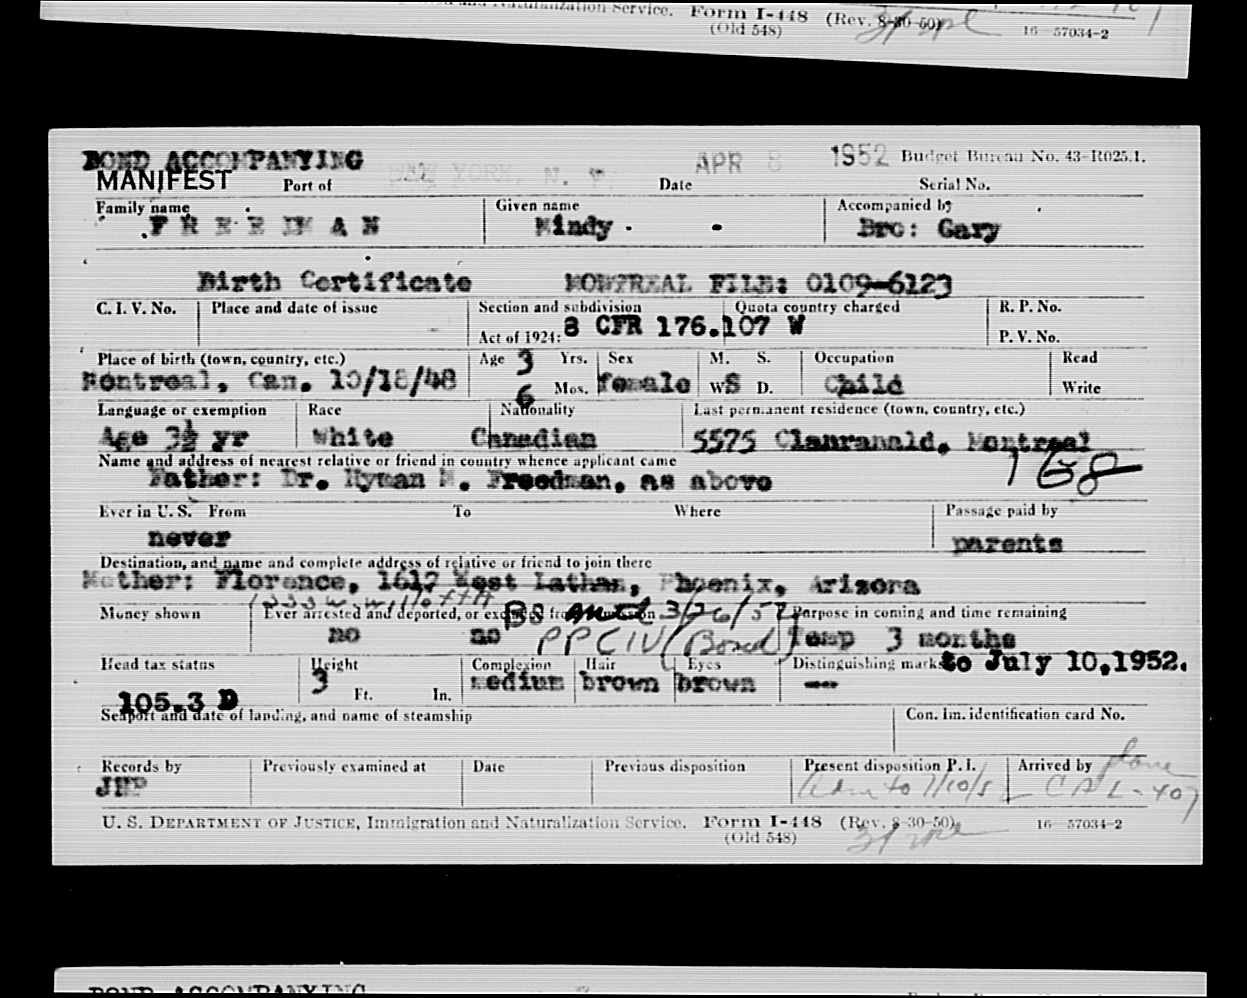 and Naturalization Service. Form I-448 (Rev. 8-30-50)
(Old 548) 16—57034-2
BOND ACCOMPANYING
APR 8 1952 Budget Bureau No. 43-R025.1.
MANIFEST Port of NEW YORK, N. Y. Date Serial No.
Family name Given name Accompanied by
F R E E D M A N Mindy - - Bro: Gary
Birth Certificate MONTREAL FILE: 0109-6123
C. I. V. No. Place and date of issue Section and subdivision Quota country charged R. P. No.
Act of 1924: 8 CFR 176.107 W P. V. No.
Place of birth (town, country, etc.) Age 3 Yrs. Sex M. S. Occupation Read
Montreal, Can. 10/18/48 6 Mos. female W S D. Child Write
Language or exemption Race Nationality Last permanent residence (town, country, etc.)
Age 3½ yr White Canadian 5575 Clanranald, Montreal
Name and address of nearest relative or friend in country whence applicant came
Father: Dr. Hyman M. Freedman, as above 168
Ever in U. S. From To Where Passage paid by
never parents
Destination, and name and complete address of relative or friend to join there
Mother: Florence, 1617 West Latham, Phoenix, Arizona
Money shown Ever arrested and deported, or excluded from admission Purpose in coming and time remaining
BS 3/26/52
no no PPCIV (Bond) Temp 3 months
Head tax status Height Complexion Hair Eyes Distinguishing marks to July 10,1952.
3 Ft. In. medium brown brown ---
105.3 D
Seaport and date of landing, and name of steamship Con. Im. identification card No.
Records by Previously examined at Date Previous disposition Present disposition P. I. Arrived by plane
JHP Adm to 7/10/52 CAL-407
U. S. DEPARTMENT OF JUSTICE, Immigration and Naturalization Service. Form I-448 (Rev. 8-30-50)
(Old 548) 16—57034-2
BOND ACCOMPANYING